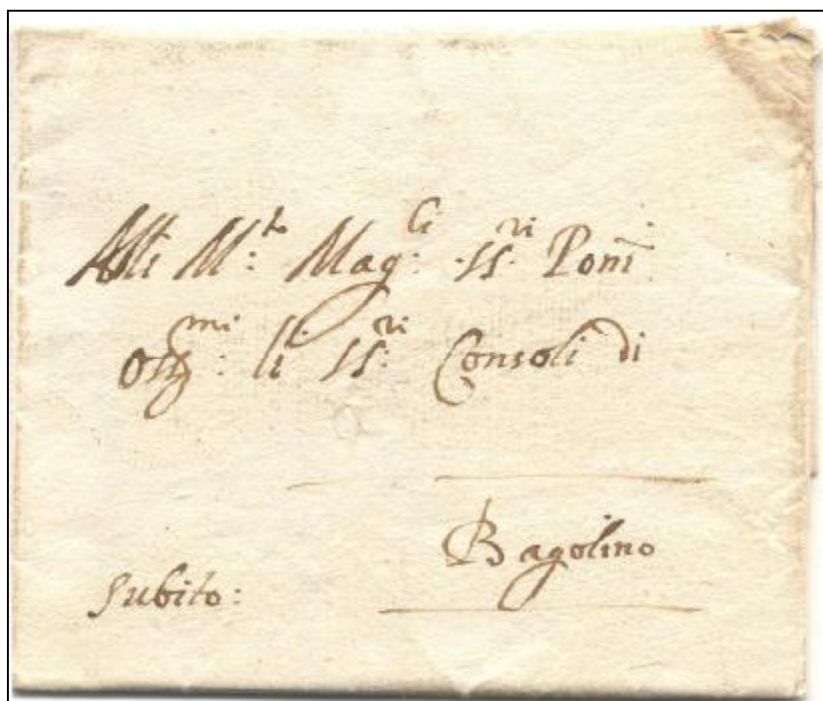 Alli M:to Mag:ci SS.ri Proni
Oss:mi li SS:ri Consoli di
Bagolino
Subito: